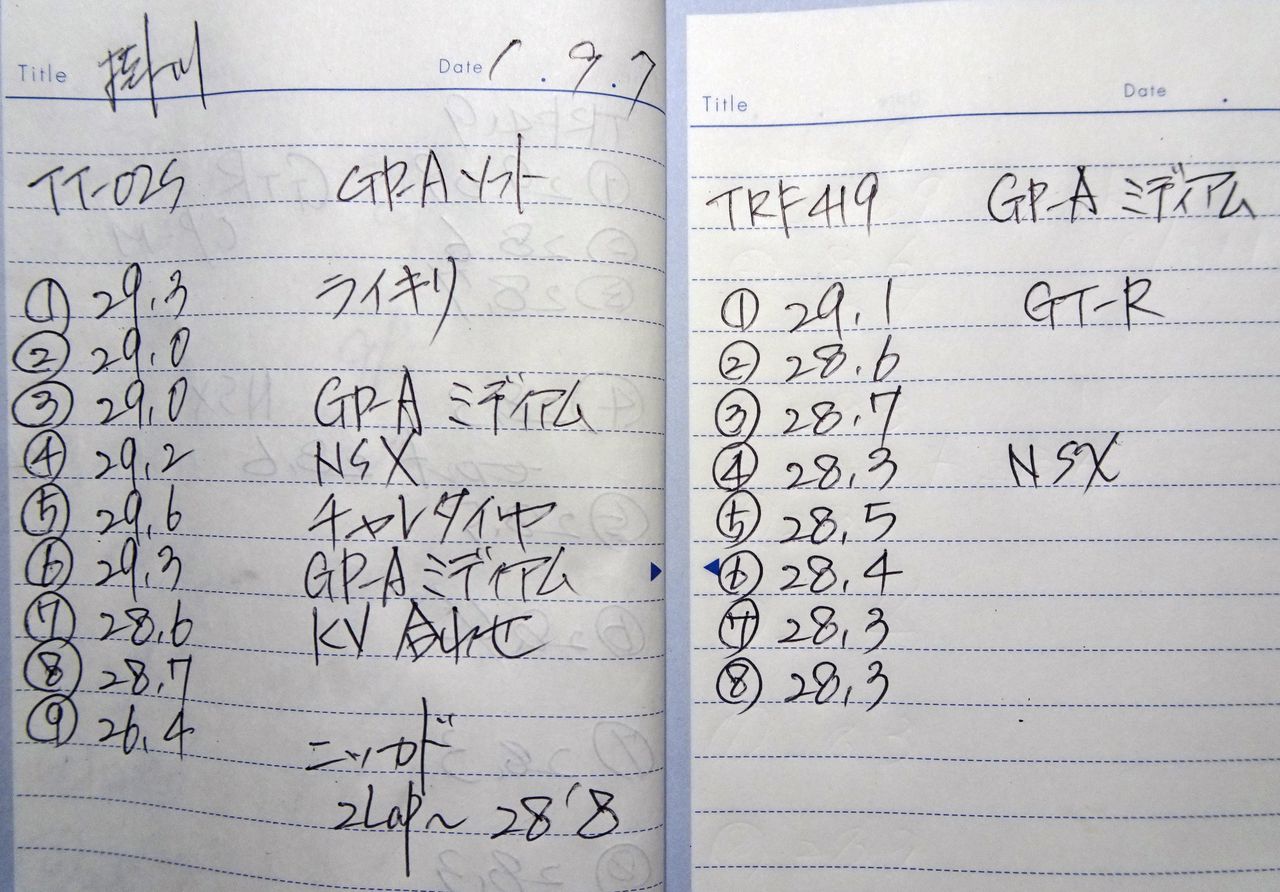 Title 掛川 Date 1.9.7
TT-02S GP-A ソフト
① 29.3 ライキリ
② 29.0
③ 29.0 GP-A ミディアム
④ 29.2 NSX
⑤ 29.6 チャレダイヤ
⑥ 29.3 GP-A ミディアム
⑦ 28.6 KV 合わせ
⑧ 28.7
⑨ 26.4 ニッカド
2Lap~ 28'8
Title Date .
TRF419 GP-A ミディアム
① 29.1 GT-R
② 28.6
③ 28.7
④ 28.3 NSX
⑤ 28.5
⑥ 28.4
⑦ 28.3
⑧ 28.3